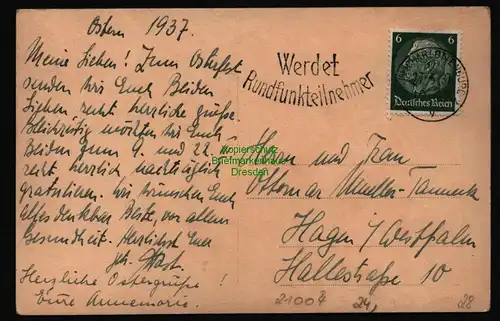 Ostern 1937.
Meine Lieben! Zum Osterfest
senden wir Euch Beiden
Lieben recht herzliche Grüße.
Gleichzeitig möchten wir Euch
Beiden zum 9. und 22. 
recht herzlich nachträglich
gratulieren. Wir wünschen Euch
alles denkbar Beste vor allem
Gesundheit. Herzlichst Euer
Herzliche Ostergrüße!
Eure Annemarie.
Werdet
Rundfunkteilnehmer
6 6
Deutsches Reich
Kopierschutz
Briefmarkenhaus
Dresden
und Frau
Ottomar Mueller-
Hagen / Westfalen
Hallestraße 10
2100 24, 28